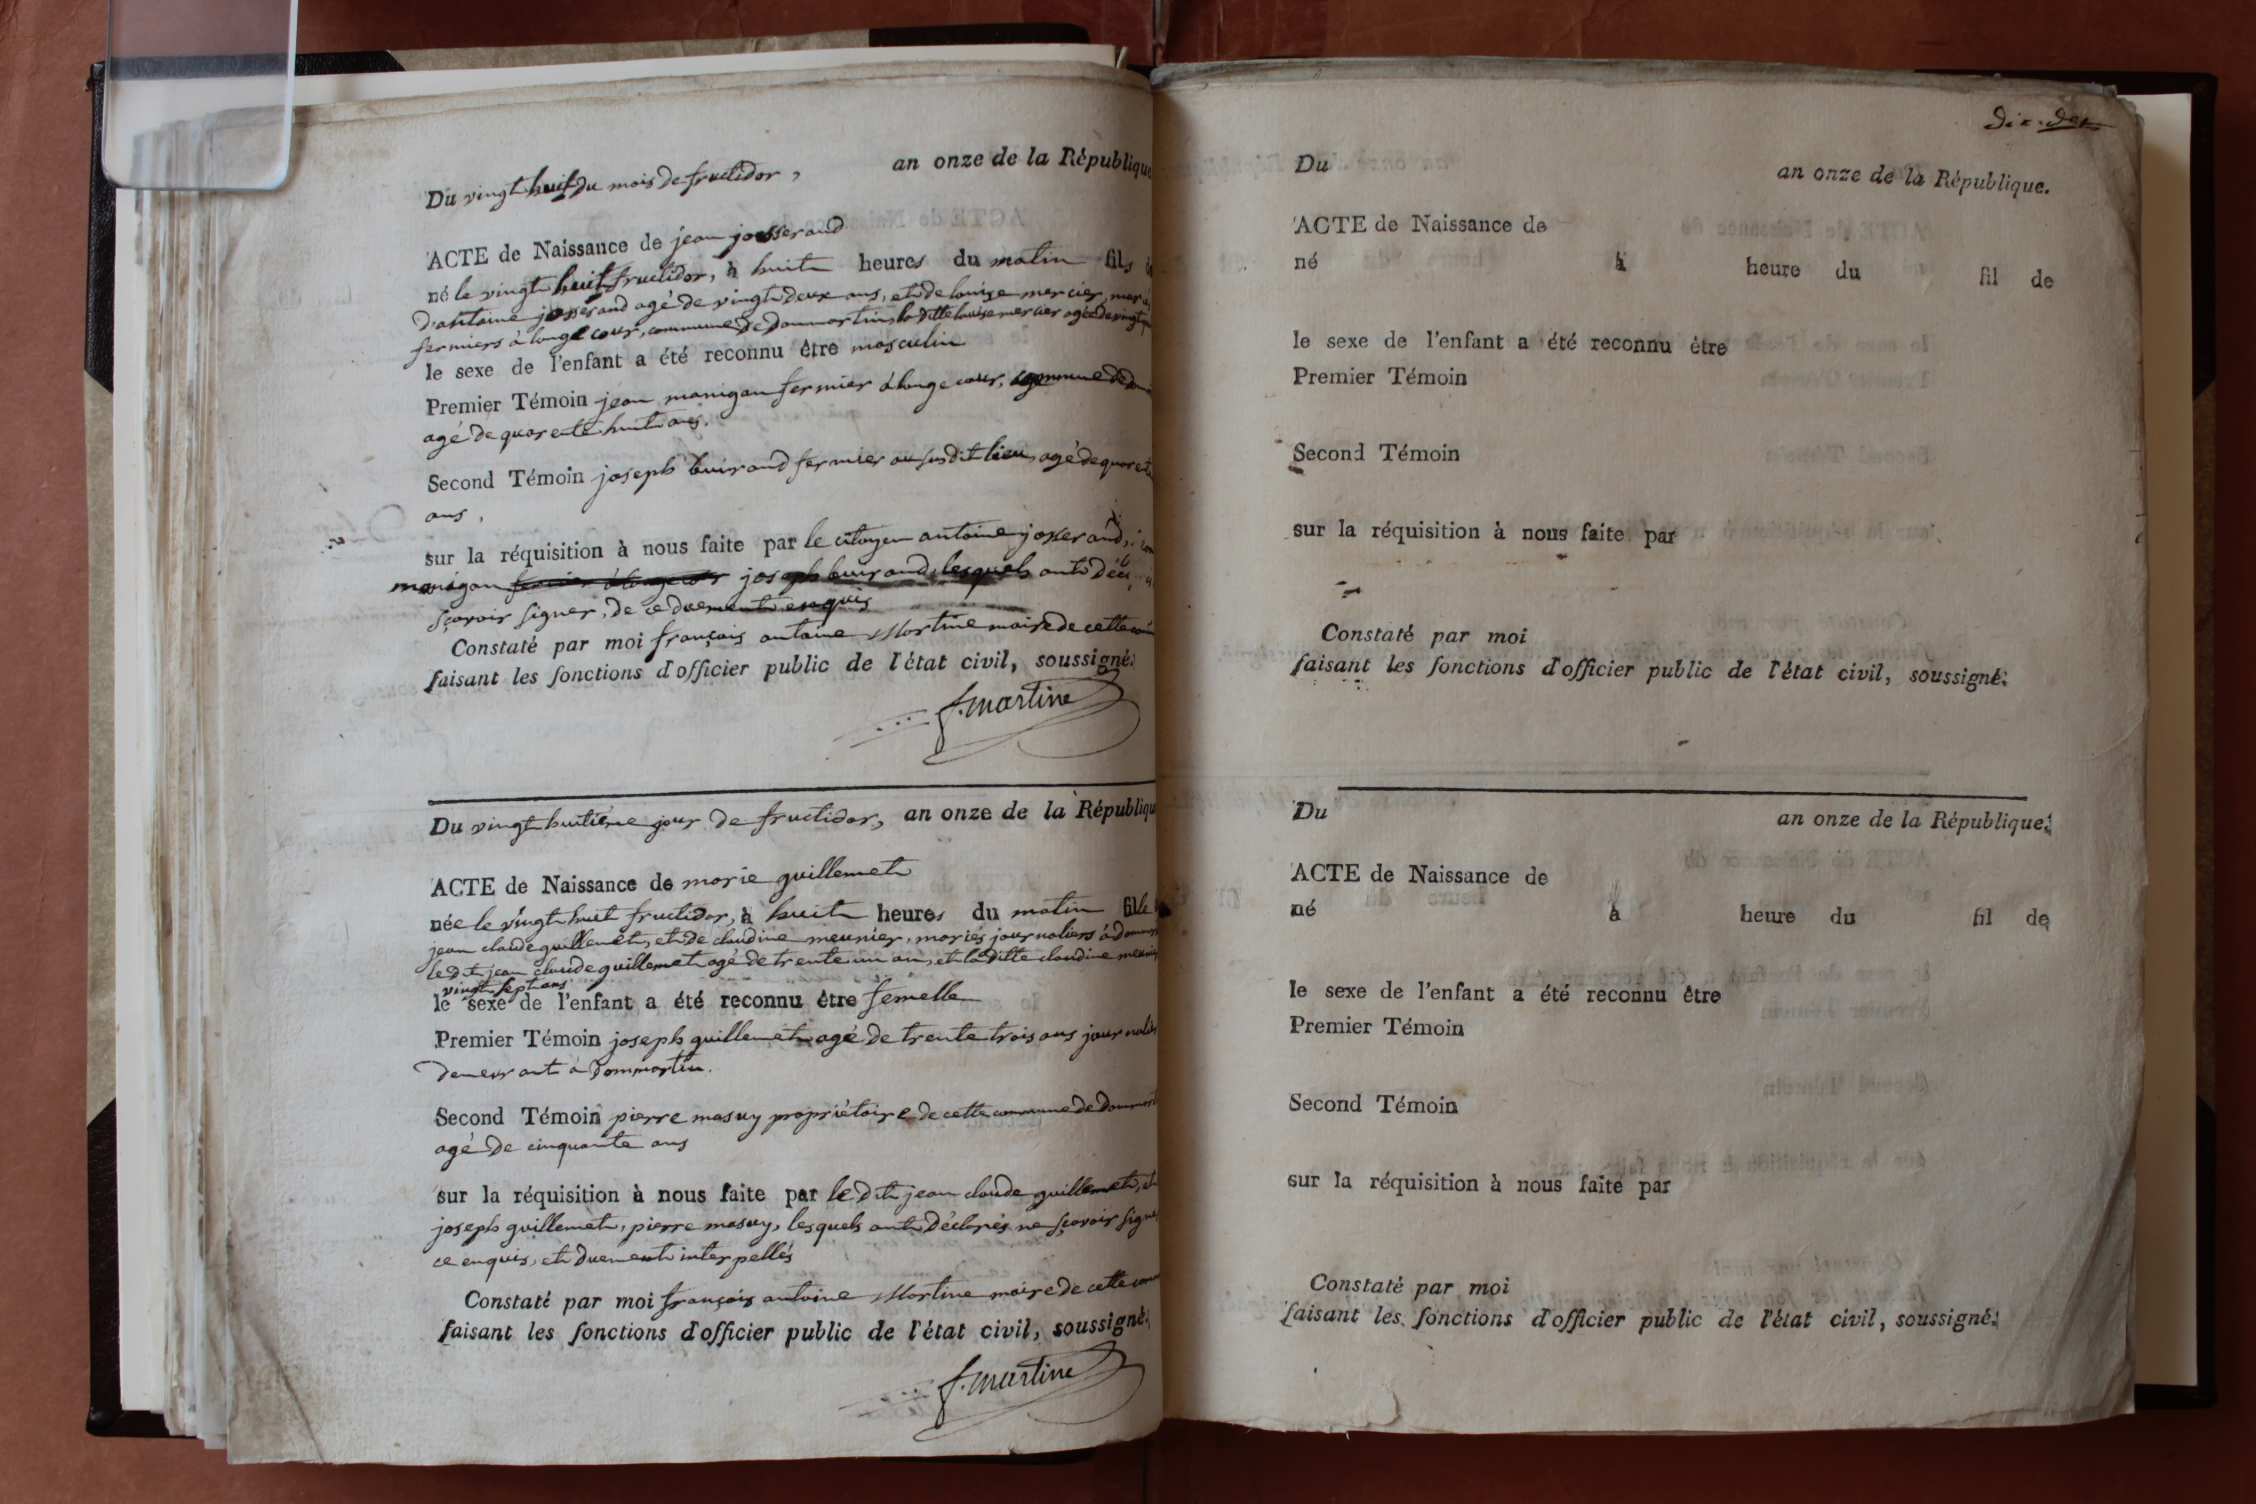 Du vingt huit du mois de fructidor, an onze de la République
ACTE de Naissance de jean josserand
né le vingt huit fructidor, à huit heures du matin fils
d'antoine josserand agé de vingt deux ans, et de louise mercier, mariés
fermiers à longe cour, commune de dommartin, la ditte louise mercier agée de vingt
le sexe de l'enfant a été reconnu être masculin
Premier Témoin jean manigan fermier à longe cour, commune de
agé de quarente huit ans.
Second Témoin joseph buirand fermier au susdit lieu, agé de quarente
ans,
sur la réquisition à nous faite par le citoyen antoine josserand,
manigan fermier à longe cour joseph buirand, lesquels ont
sçavoir signer, de ce duement enquis
Constaté par moi françois antoine Martine maire de cette
faisant les fonctions d'officier public de l'état civil, soussigné.
f. martine
Du vingt huitième jour de fructidor, an onze de la République
ACTE de Naissance de marie guillemet
née le vingt huit fructidor, à huit heures du matin fille
jean claude guillemet, et de claudine meunier, mariés journaliers à
le dit jean claude guillemet agé de trente un an, et la ditte claudine meunier
vingt sept ans
le sexe de l'enfant a été reconnu être femelle
Premier Témoin joseph guillemet agé de trente trois ans
demeurant à Dommartin.
Second Témoin pierre masuy propriétaire de cette commune de
agé de cinquante ans
sur la réquisition à nous faite par le dit jean claude guillemet, et
joseph guillemet, pierre masuy, lesquels ont déclarés ne sçavoir
ce enquis, et duement interpellés
Constaté par moi françois antoine Martine maire de cette
faisant les fonctions d'officier public de l'état civil, soussigné.
f. martine
Du an onze de la République.
ACTE de Naissance de
né à heure du fil de
le sexe de l'enfant a été reconnu être
Premier Témoin
Second Témoin
sur la réquisition à nous faite par
Constaté par moi
faisant les fonctions d'officier public de l'état civil, soussigné.
Du an onze de la République.
ACTE de Naissance de
né à heure du fil de
le sexe de l'enfant a été reconnu être
Premier Témoin
Second Témoin
sur la réquisition à nous faite par
Constaté par moi
faisant les fonctions d'officier public de l'état civil, soussigné.